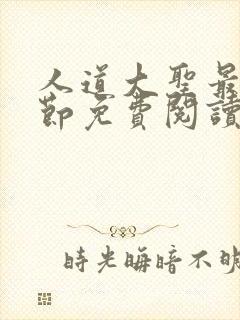 人道大聖最
節免費閱讀
時光晦暗不明